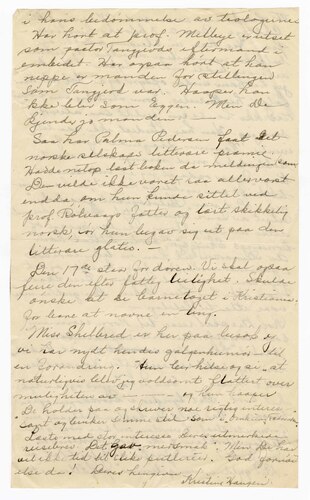 i hans bedømmelse av teologerne
Har hørt at prof. Mellbye er utset
som pastor Tangjerds eftermand i
embedet. Har ogsaa hørt at han
neppe er manden for stillingen
som Tangjerd var. Haaper han
ikke blir som Eggen. Men De
kjender jo manden. —
Saa har Palma Pedersen faat Det
norske selskabs litterære præmie
Hadde netop læst boken da meldingen kom
Den vilde ikke været saa allerværst
endda, om hun kunde sittet ved
prof. Rølvaags føtter og lært skikkelig
norsk, før hun begav sig ut paa den
litterære glatis. —
Den 17de staar for døren. Vi skal ogsaa
feire den efter fattig leilighet. Skulde
ønske at se barnetoget i Kristiania
for bare at nævne en ting.
Miss Shelbred er her paa besøk og
vi har nydt hendes galgenhumor til
en forandring. Hun ber hilse og se. at
naturligvis blev jeg voldsomt flattert over
muligheten av — og hun haaper
De holder paa og skriver noe rigtig interes-
sant og
Læste med stor interesse Deres
reisebrev. Det gav mersmak. Men De har
vel ikke tid til slike putlerier. God fornøi-
else da! Deres hengivne
Kristine Haugen